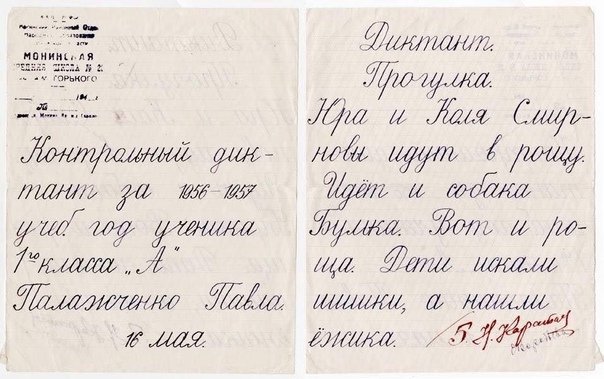 МОНИНСКАЯ
СРЕДНЯЯ ШКОЛА №
ГОРЬКОГО
Контрольный дик-
тант за 1956-1957
учеб. год ученика
1го класса „А"
Палажченко Павла.
16 мая.
Диктант.
Прогулка.
Юра и Коля Смир-
новы идут в рощу.
Идёт и собака
Булка. Вот и ро-
ща. Дети искали
шишки, а нашли
ёжика.
5.